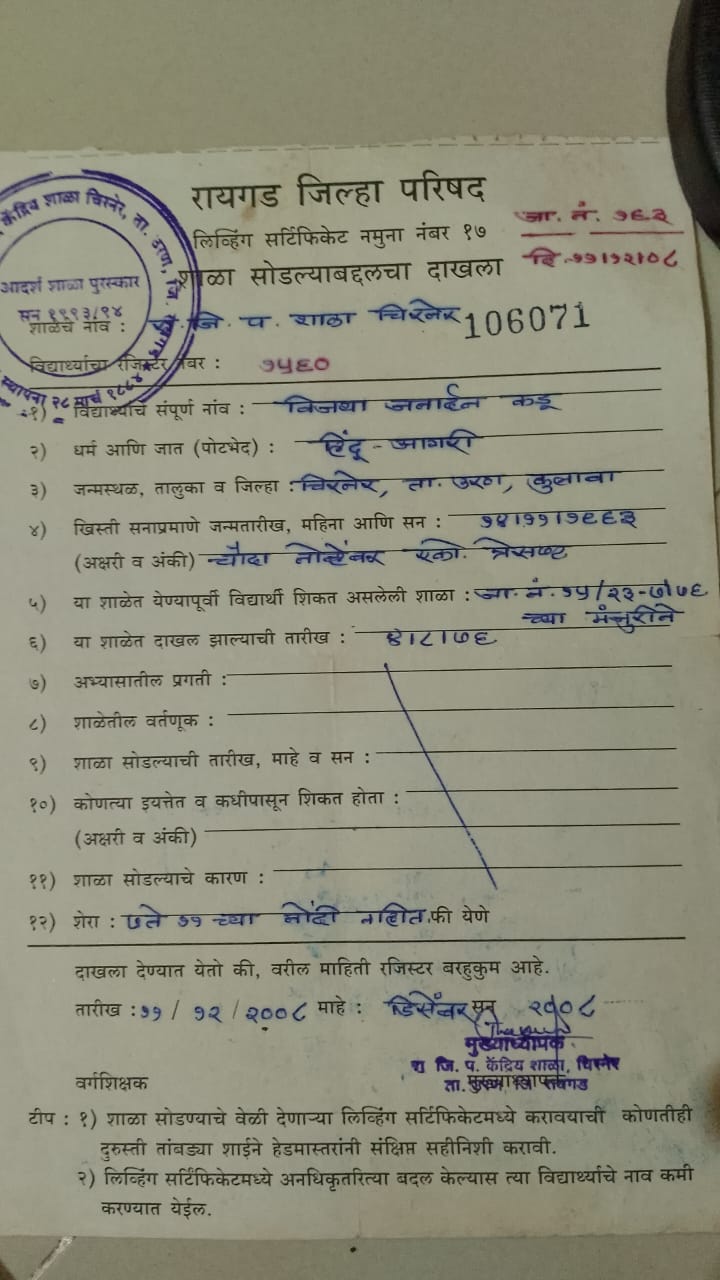 केंद्रिय शाळा चिरनेर, ता. उरण, जि.
आदर्श शाळा पुरस्कार
सन १९९३/९४
स्थापना २८ मार्च १८८४
रायगड जिल्हा परिषद
लिव्हिंग सर्टिफिकेट नमुना नंबर १७
जा. नं. ७६३
शाळा सोडल्याबद्दलचा दाखला
दि. ११/१२/०८
शाळेचे नांव : रा. जि. प. शाळा चिरनेर 106071
विद्यार्थ्याचा रजिस्टर नंबर : १५६०
१) विद्यार्थ्याचे संपूर्ण नांव : विजया जनार्दन कडू
२) धर्म आणि जात (पोटभेद) : हिंदू - आगरी
३) जन्मस्थळ, तालुका व जिल्हा : चिरनेर, ता. उरण, कुलाबा
४) खिस्ती सनाप्रमाणे जन्मतारीख, महिना आणि सन : १४/११/१९६३
(अक्षरी व अंकी) चौदा नोव्हेंबर एको. त्रेसष्ट
५) या शाळेत येण्यापूर्वी विद्यार्थी शिकत असलेली शाळा : जा. नं. १५/२३-७/७६
च्या मंजुरीने
६) या शाळेत दाखल झाल्याची तारीख : ४/८/७६
७) अभ्यासातील प्रगती :
८) शाळेतील वर्तणूक :
९) शाळा सोडल्याची तारीख, माहे व सन :
१०) कोणत्या इयत्तेत व कधीपासून शिकत होता :
(अक्षरी व अंकी)
११) शाळा सोडल्याचे कारण :
१२) शेरा : ७ ते ११ च्या नोंदी नाहीत. की येणे
दाखला देण्यात येतो की, वरील माहिती रजिस्टर बरहुकुम आहे.
तारीख : ११ / १२ / २००८ माहे : डिसेंबर सन २००८
मुख्याध्यापक
रा जि. प. केंद्रिय शाळा, चिरनेर
ता. उरण, जि. रायगड
वर्गशिक्षक मुख्याध्यापक
टीप : १) शाळा सोडण्याचे वेळी देणाऱ्या लिव्हिंग सर्टिफिकेटमध्ये करावयाची कोणतीही
दुरुस्ती तांबड्या शाईने हेडमास्तरांनी संक्षिप्त सहीनिशी करावी.
२) लिव्हिंग सर्टिफिकेटमध्ये अनधिकृतरित्या बदल केल्यास त्या विद्यार्थ्याचे नाव कमी
करण्यात येईल.